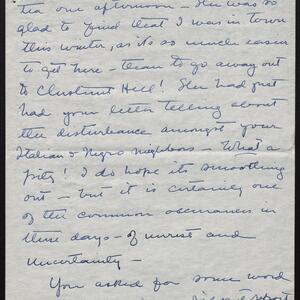 tea one afternoon - She was so
glad to find that I was in town
this winter, as it's so much easier
to get here - than to go away out
to Chestnut Hill! She had just
had your letter telling about
the disturbance amongst your
Italian & Negro neighbors - What a
pity! I do hope its smoothing
out - but it is certainly one
of the common occurrences in
these days - of unrest and
Uncertainty -
You asked for some word